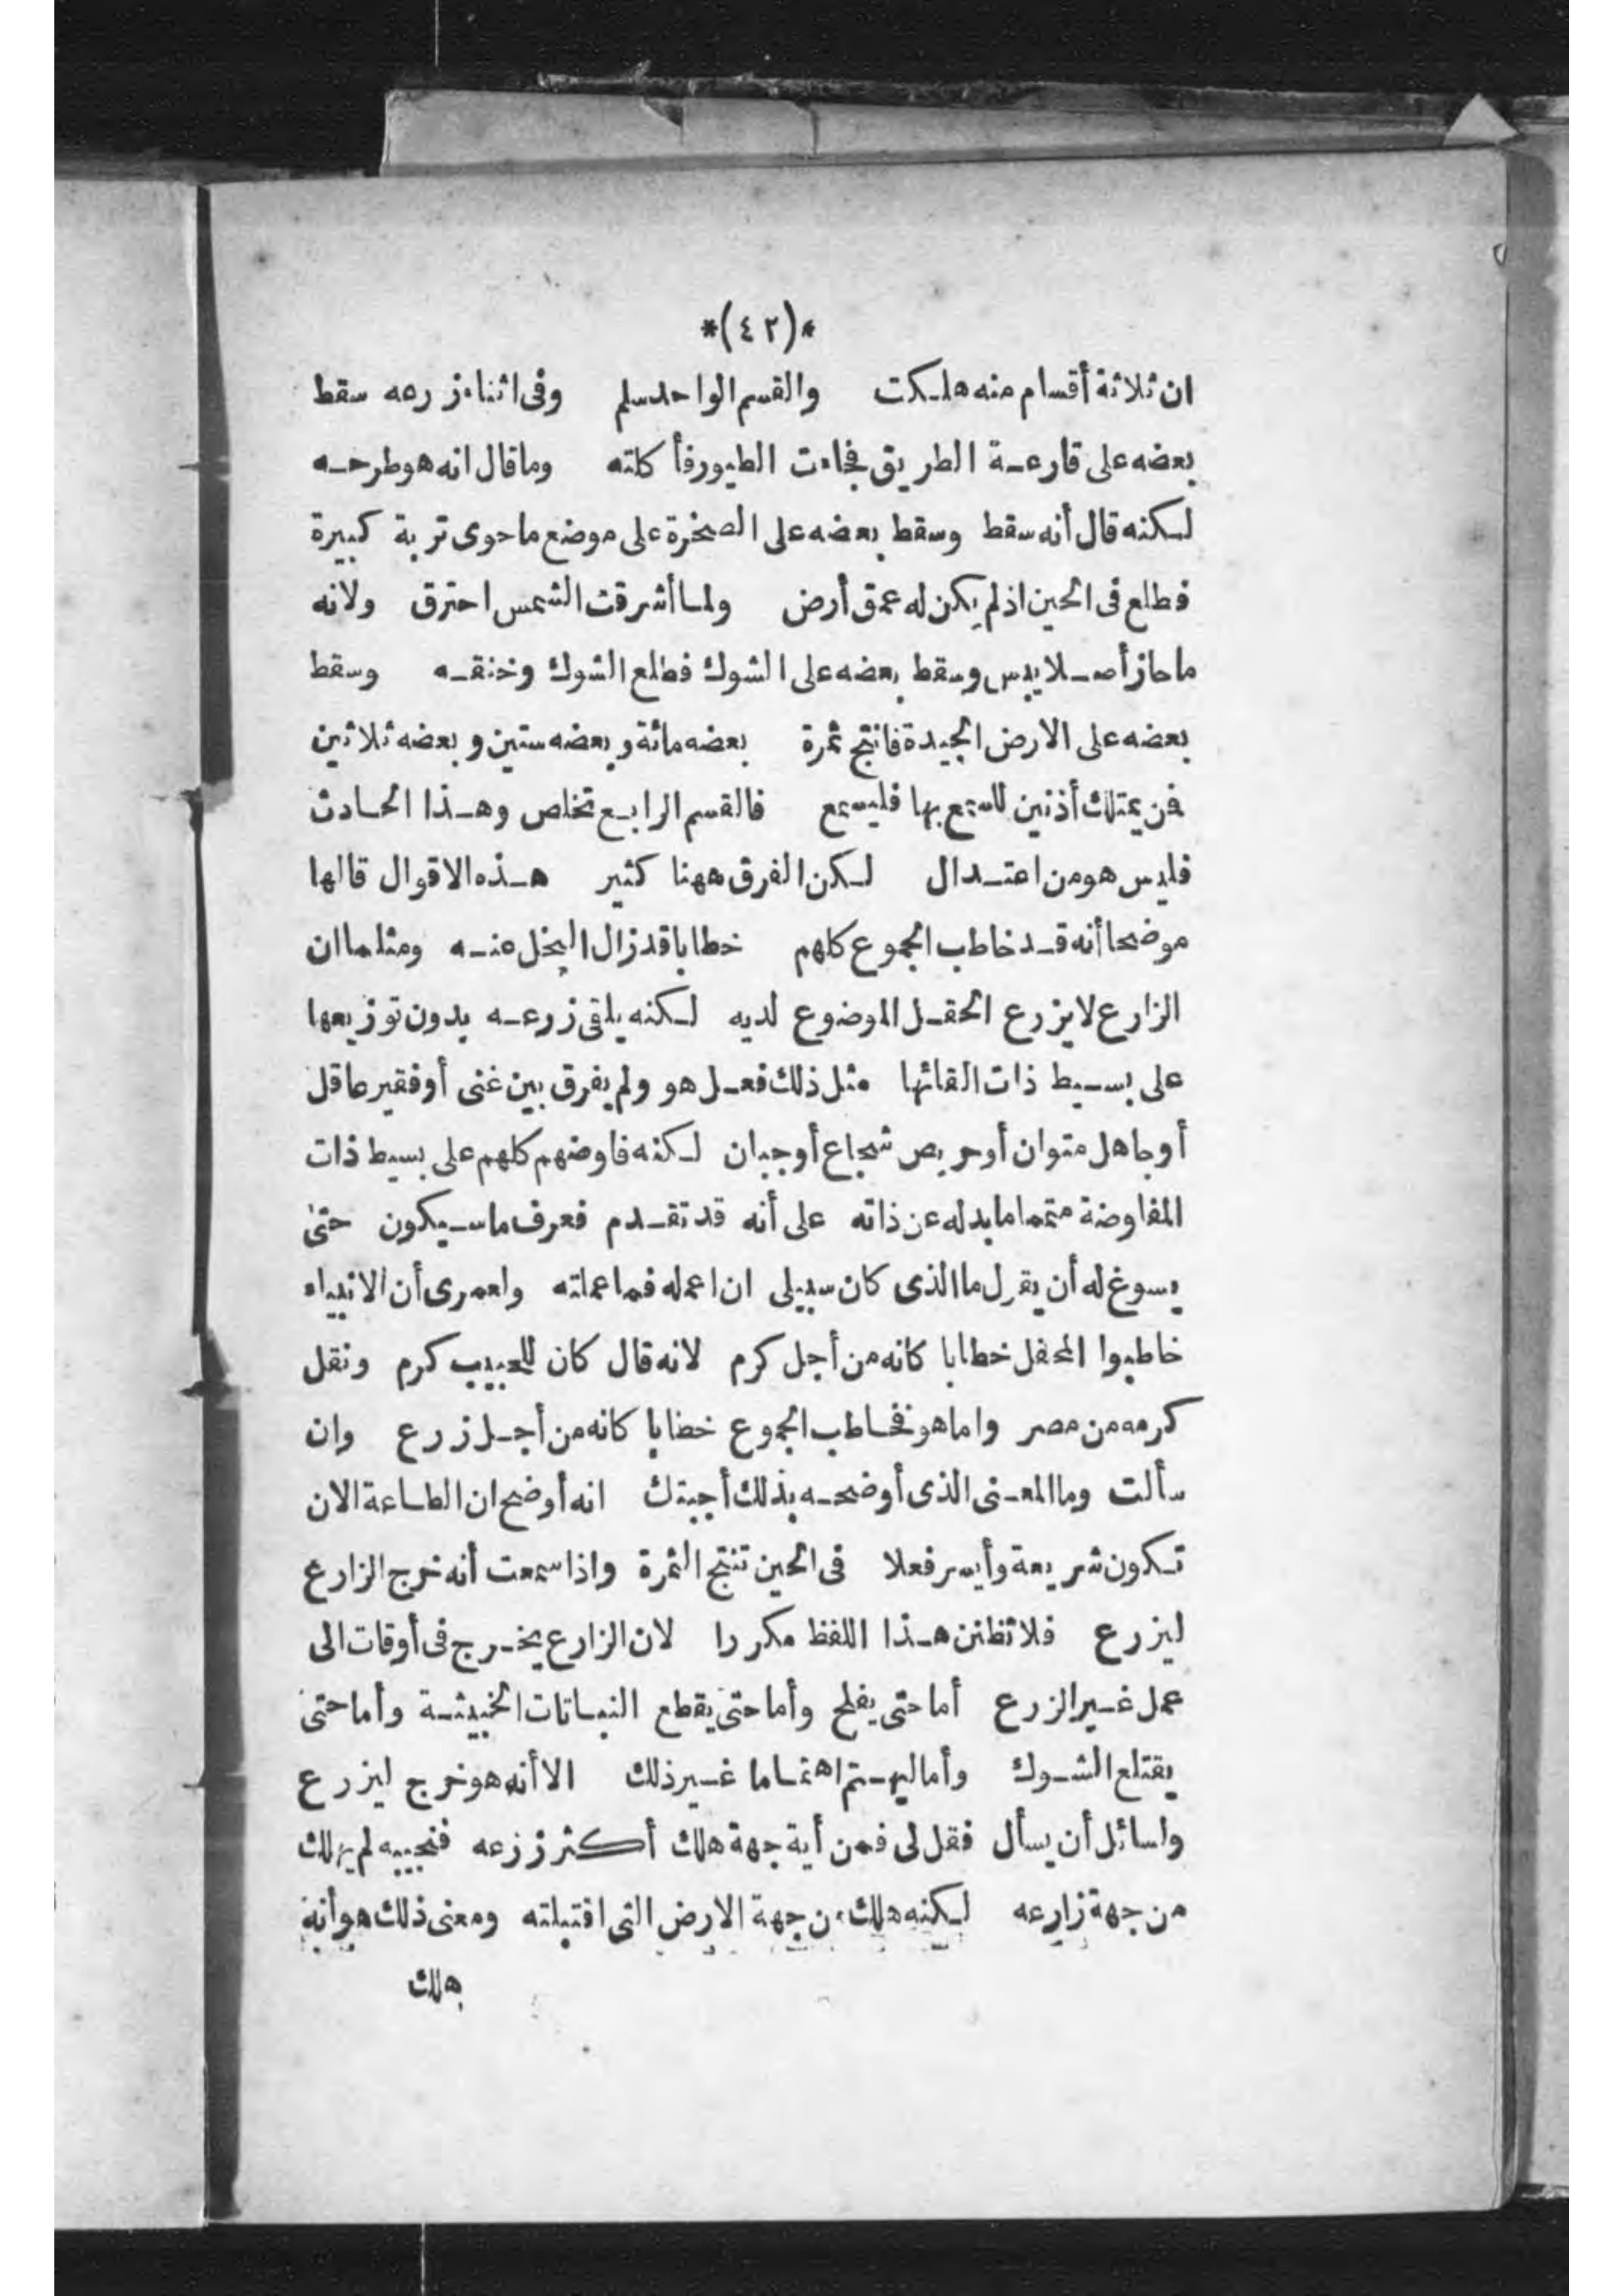 *(٤٢)*
ان ثلاثة أقسام منه هلكت والقسم الواحد سلم وفى اثناء زرعه سقط
بعضه على قارعة الطريق فجاءت الطيور فأكلته وما قال انه هو طرحه
لكنه قال أنه سقط وسقط بعضه على الصخرة على موضع ما حوى تربة كبيرة
فطلع فى الحين اذ لم يكن له عمق أرض ولما أشرقت الشمس احترق ولانه
ما حاز أصلا يبس وسقط بعضه على الشوك فطلع الشوك وخنقه وسقط
بعضه على الارض الجيدة فانتج ثمرة بعضه مائة وبعضه ستين وبعضه ثلاثين
فمن يمتلك أذنين للسمع بها فليسمع فالقسم الرابع تخلص وهذا الحادث
فليس هو من اعتدال لكن الفرق ههنا كثير هذه الاقوال قالها
موضحا أنه قد خاطب الجموع كلهم خطابا قد زال البخل عنه ومثلما ان
الزارع لا يزرع الحقل الموضوع لديه لكنه يلقى زرعه بدون توزيعها
على بسيط ذات القائها مثل ذلك فعل هو ولم يفرق بين غنى أو فقير عاقل
أو جاهل متوان أو حريص شجاع أو جبان لكنه فاوضهم كلهم على بسيط ذات
المفاوضة متمما ما بدله عن ذاته على أنه قد تقدم فعرف ما سيكون حتى
يسوغ له أن يقول ما الذى كان سبيلى ان اعمله فما عملته ولعمرى أن الانبياء
خاطبوا المحفل خطابا كانه من أجل كرم لانه قال كان للحبيب كرم ونقل
كرمه من مصر واما هو فخاطب الجموع خطابا كانه من أجل زرع وان
سألت وما المعنى الذى أوضحه بذلك أجبتك انه أوضح ان الطاعة الان
تكون شريعة وأيسر فعلا فى الحين تنتج الثمرة واذا سمعت أنه خرج الزارع
ليزرع فلا تظنن هذا اللفظ مكررا لان الزارع يخرج فى أوقات الى
عمل غير الزرع أما حتى يفلح وأما حتى يقطع النباتات الخبيثة وأما حتى
يقتلع الشوك وأما ليهتم اهتماما غير ذلك الا أنه هو خرج ليزرع
واسائل أن يسأل فقل لى فمن أية جهة هلك أكثر زرعه فنجيبه لم يهلك
من جهة زارعه لكنه هلك من جهة الارض التى اقتبلته ومعنى ذلك هو أنه
هلك